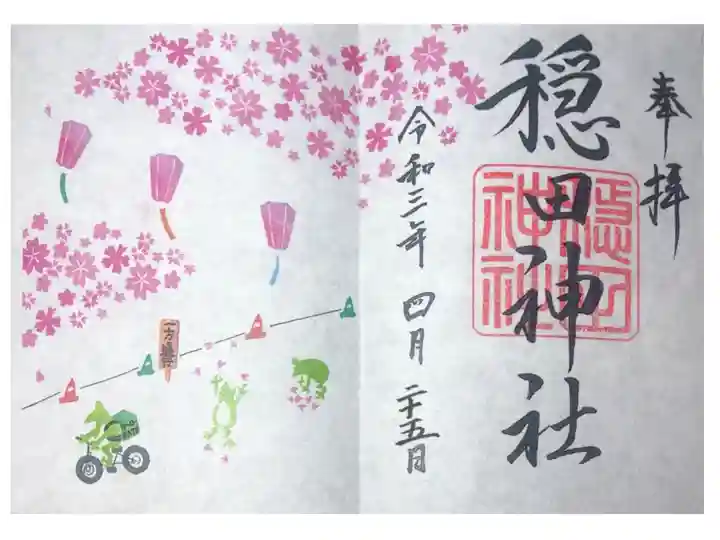 奉拝
穏田神社
穏田神社
令和三年 四月 二十五日
一方通行